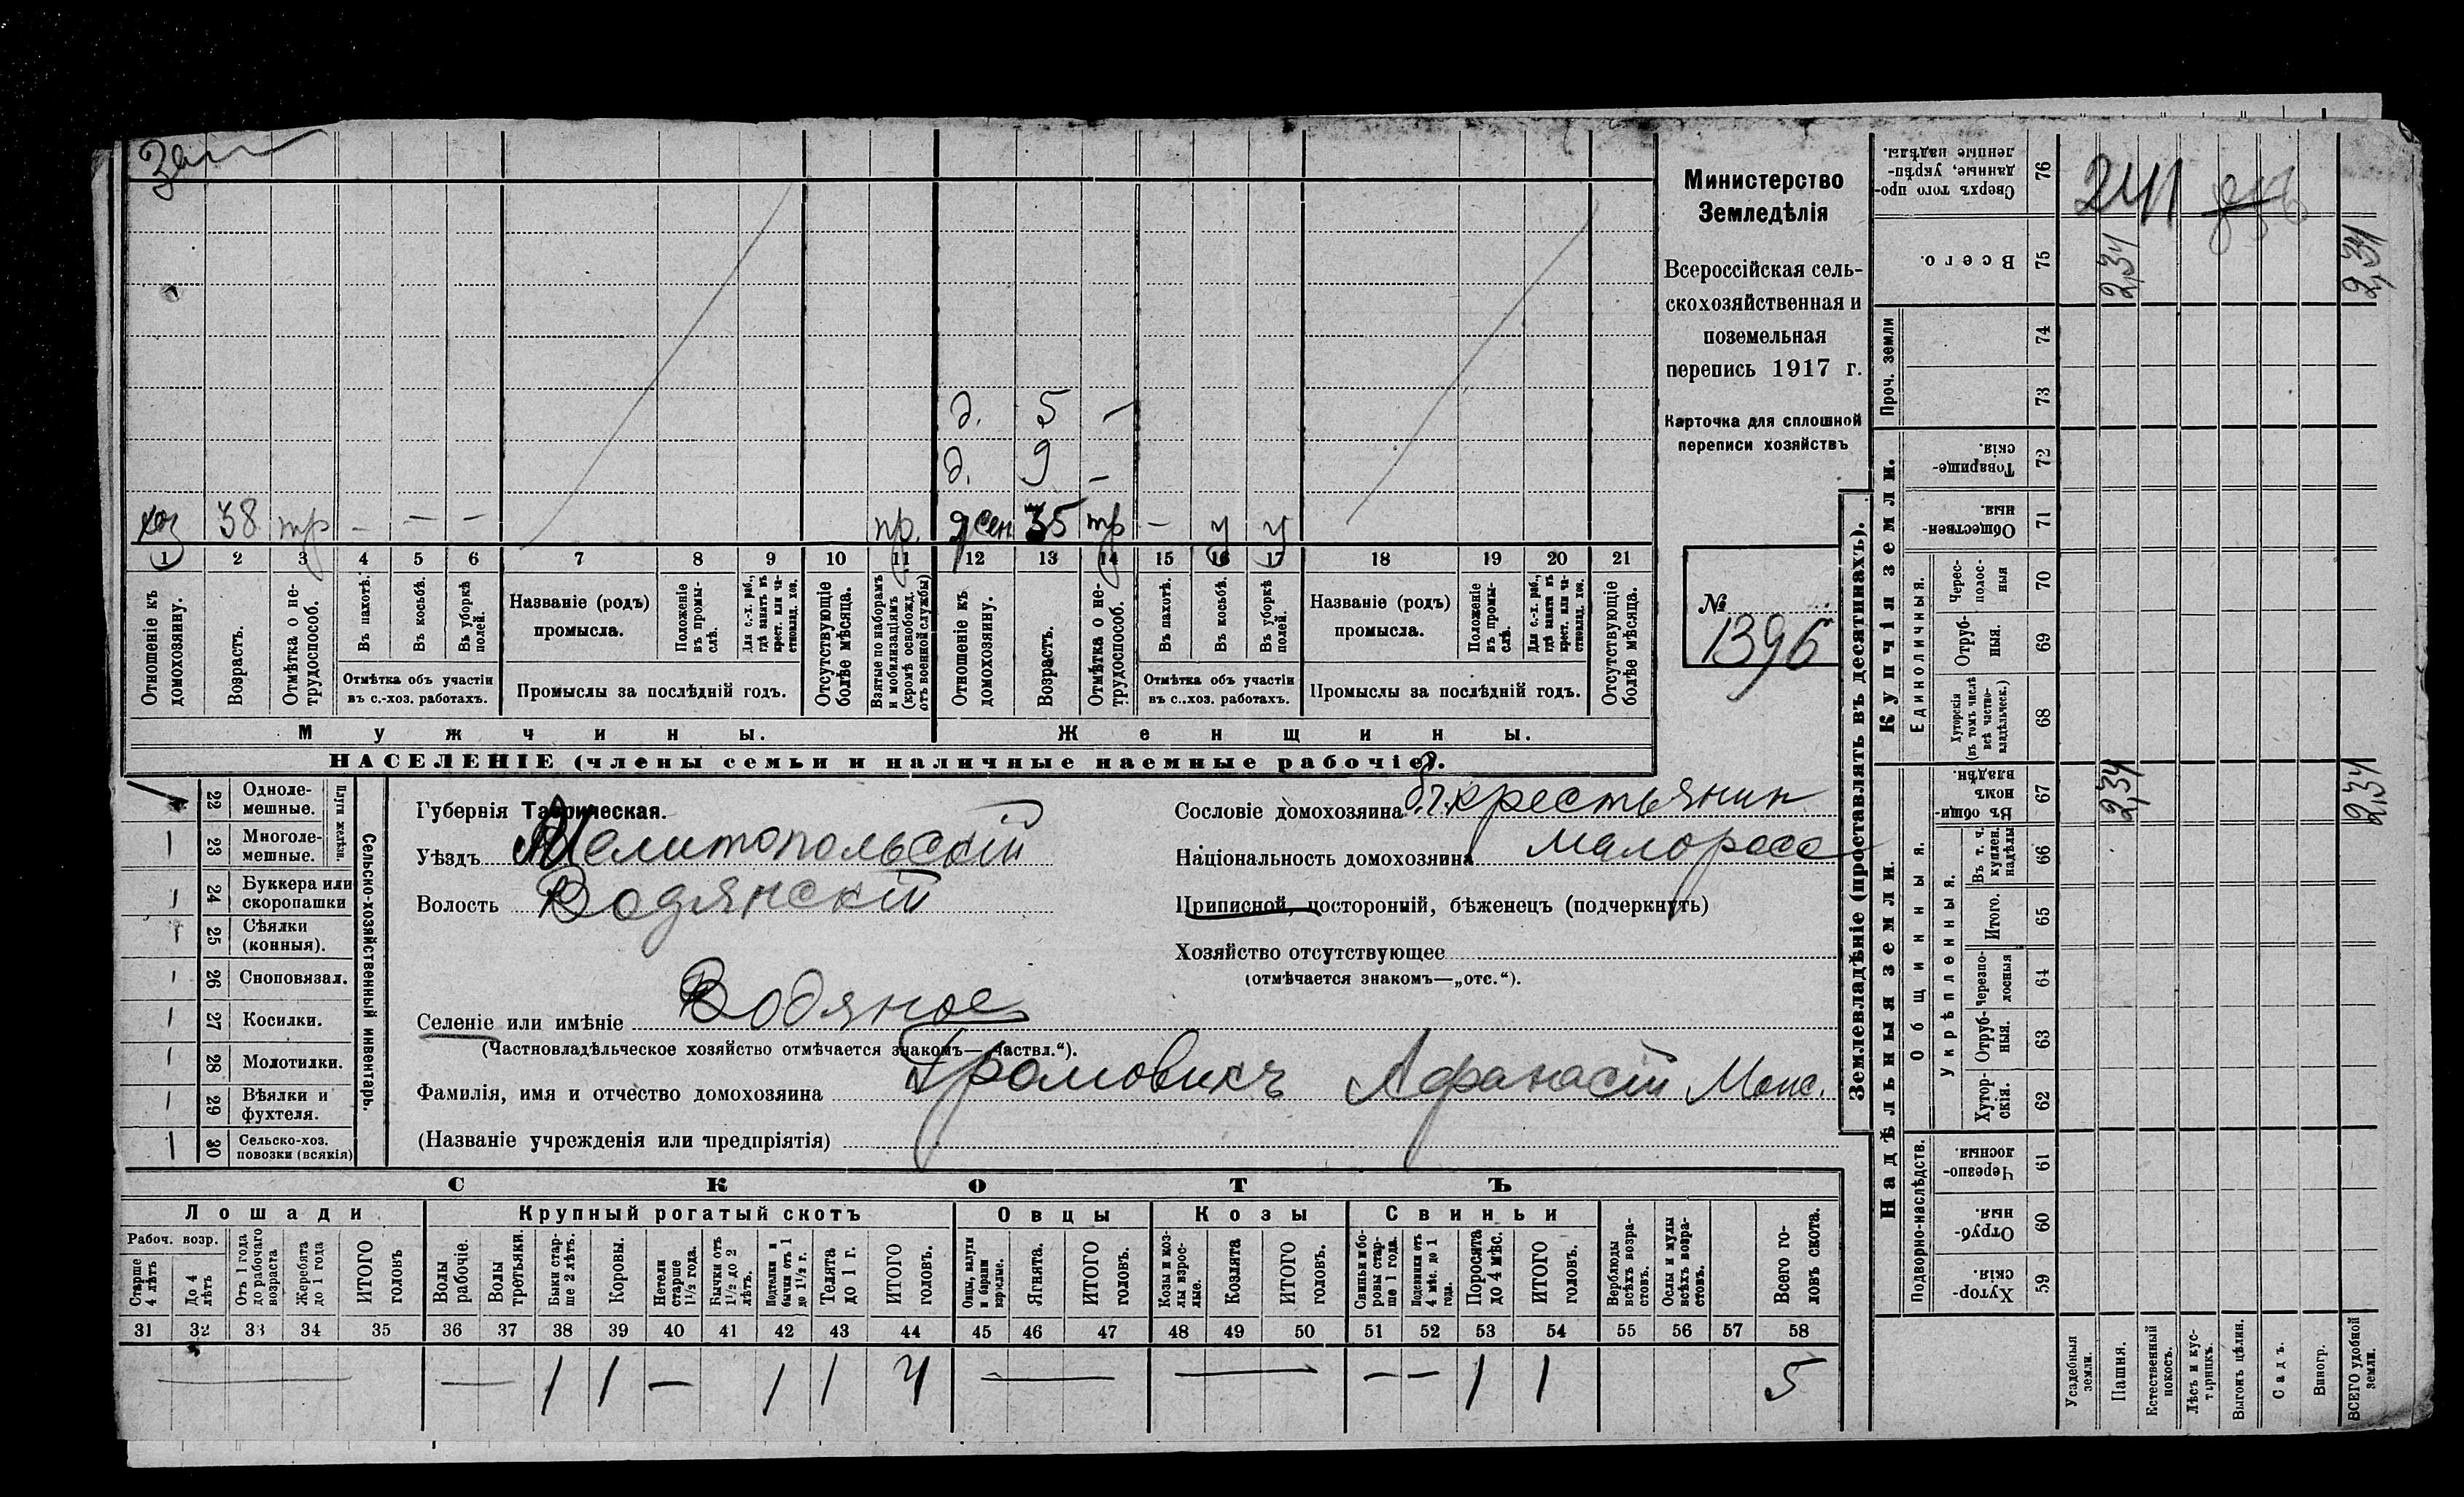 Министерство
Земледѣлія
Всероссійская сель-
скохозяйственная и
поземельная
перепись 1917 г.
Карточка для сплошной
переписи хозяйствъ
№
1396
д. 5 —
д. 9 —
хоз 38 тр — — — пр. жен 35 тр — у у
1 2 3 4 5 6 7 8 9 10 11 12 13 14 15 16 17 18 19 20 21
Отношеніе къ домохозяину.
Возрастъ.
Отмѣтка о не-трудоспособ.
Въ пахотѣ.
Въ косьбѣ.
Въ уборкѣ полей.
Отмѣтка объ участіи въ с.-хоз. работахъ.
Названіе (родъ) промысла.
Положеніе въ промы-слѣ.
Для с.-х. раб., гдѣ занятъ въ крест. или ча-стновлад. хоз.
Промыслы за послѣдній годъ.
Отсутствующіе болѣе мѣсяца.
Взятые по наборамъ и мобилизаціямъ (кромѣ освобожд. отъ военной службы)
Отношеніе къ домохозяину.
Возрастъ.
Отмѣтка о не-трудоспособ.
Въ пахотѣ.
Въ косьбѣ.
Въ уборкѣ полей.
Отмѣтка объ участіи въ с.-хоз. работахъ.
Названіе (родъ) промысла.
Положеніе въ промы-слѣ.
Для с.-х. раб., гдѣ занята въ крест. или ча-стновлад. хоз.
Промыслы за послѣдній годъ.
Отсутствующіе болѣе мѣсяца.
Мужчины.
Женщины.
НАСЕЛЕНІЕ (члены семьи и наличные наемные рабочіе).
Сельско-хозяйственный инвентарь.
Плуги желѣзн.
22 Одноле-мешные.
23 Многоле-мешные.
24 Буккера или скоропашки
25 Сѣялки (конныя).
26 Сноповязал.
27 Косилки.
28 Молотилки.
29 Вѣялки и фухтеля.
30 Сельско-хоз. повозки (всякія)
Губернія Таврическая.
Уѣздъ Мелитопольскій
Волость Водянскій
Селеніе или имѣніе Водяное
(Частновладѣльческое хозяйство отмѣчается знакомъ—„частвл.“).
Фамилія, имя и отчество домохозяина Громовикъ Афанасій
(Названіе учрежденія или предпріятія)
Сословіе домохозяина крестьянин
Національность домохозяина малоросс
Приписной, посторонній, бѣженецъ (подчеркнуть)
Хозяйство отсутствующее
(отмѣчается знакомъ—„отс.“).
СКОТЪ
Лошади
Крупный рогатый скотъ
Овцы
Козы
Свиньи
Рабоч. возр.
Старше 4 лѣтъ
До 4 лѣтъ
Отъ 1 года до рабочаго возраста
Жеребята до 1 года
ИТОГО головъ
Волы рабочіе.
Волы третьяки.
Быки стар-ше 2 лѣтъ.
Коровы.
Нетели старше 1½ года.
Бычки отъ 1½ до 2 лѣтъ.
Подтелки и бычки отъ 1 до 1½ г.
Телята до 1 г.
ИТОГО головъ.
Овцы, валухи и бараны взрослые.
Ягнята.
ИТОГО головъ.
Козы и коз-лы взрос-лые.
Козлята
ИТОГО головъ.
Свиньи и бо-ровы стар-ше 1 года.
Подсвинки отъ 4 мѣс. до 1 года.
Поросята до 4 мѣс.
ИТОГО головъ.
Верблюды всѣхъ возра-стовъ.
Ослы и мулы всѣхъ возра-стовъ.
Всего го-ловъ скота.
31 32 33 34 35 36 37 38 39 40 41 42 43 44 45 46 47 48 49 50 51 52 53 54 55 56 57 58
— — 1 1 — 1 1 4 — — — — 1 1 5
Землевладѣніе (проставлять въ десятинахъ).
Надѣльныя земли.
Купчія земли.
Проч. земли
Подворно-наслѣдств.
Общинныя.
Укрѣпленныя.
Единоличныя.
Сверхъ того про-данные, укрѣп-ленные надѣлы. 76
Всего. 75
74
73
Товарище-скія. 72
Обществен-ныя. 71
Черес-полос-ныя 70
Отруб-ныя. 69
Хуторскія (въ томъ числѣ всѣ частно-владѣльческ.) 68
Въ общи-номъ владѣн. 67
Въ т. ч. куплен. надѣлы 66
Итого. 65
Черезпо-лосныя 64
Отруб-ныя. 63
Хутор-скія. 62
Черезпо-лосныя. 61
Отруб-ныя. 60
Хутор-скія. 59
241
2,34 2,34
2,34 2,34
Усадебныя земли.
Пашня.
Естественный покосъ.
Лѣсъ и кус-тарникъ.
Выгонъ цѣлин.
Садъ.
Виногр.
ВСЕГО удобной земли.